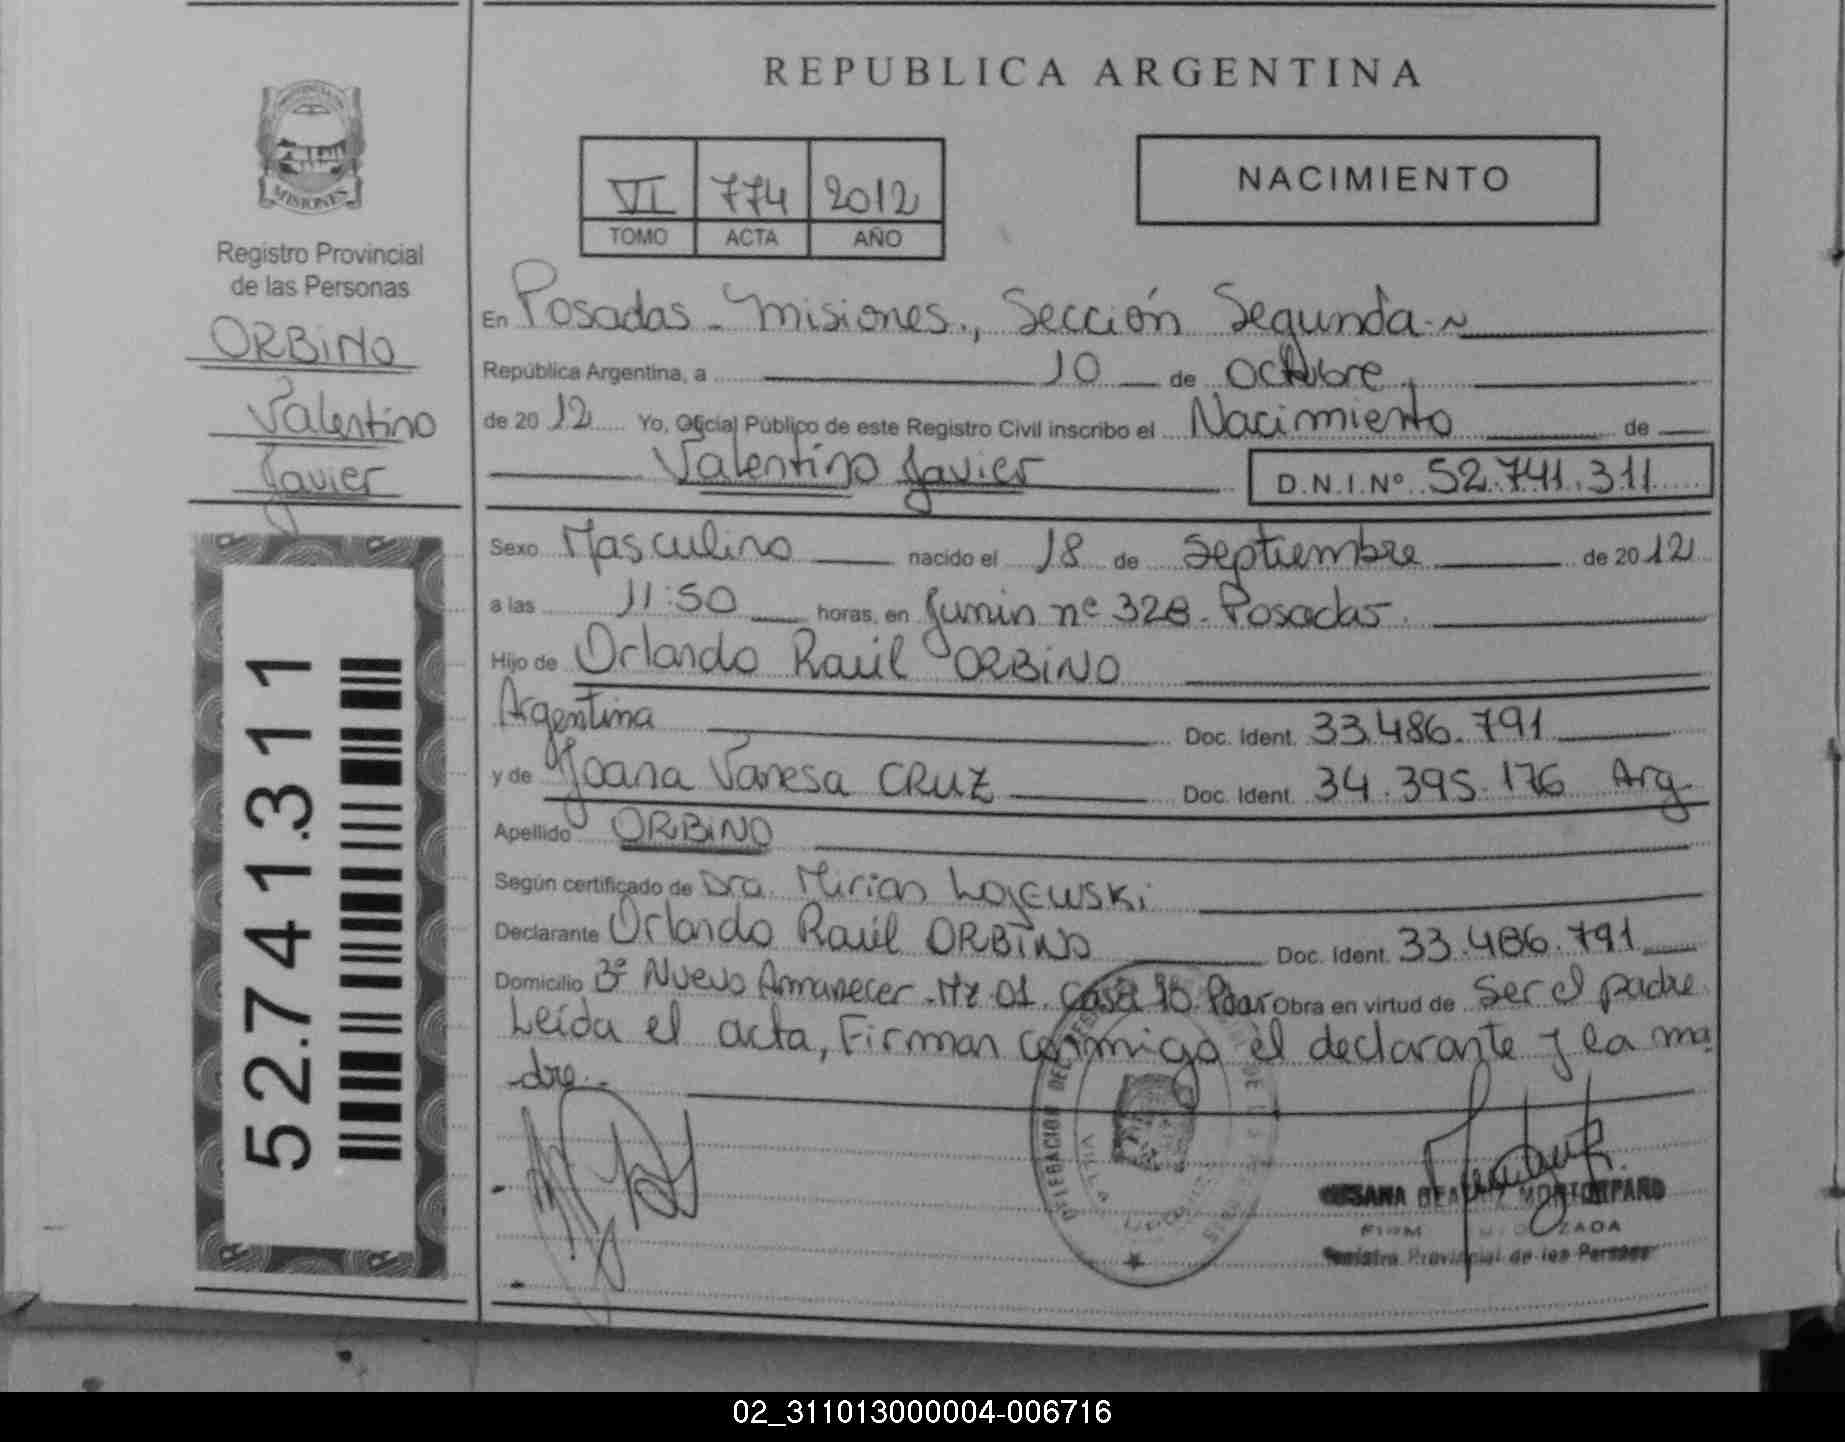 REPUBLICA ARGENTINA
PROVINCIA DE
MISIONES
Registro Provincial
de las Personas
ORBINO
Valentino
Javier
52.741.311
VI 774 2012
TOMO ACTA AÑO
NACIMIENTO
En Posadas - Misiones., Sección Segunda.~
República Argentina, a 10 de octubre,
de 2012 Yo, Oficial Público de este Registro Civil inscribo el Nacimiento de
Valentino Javier D.N.I.Nº 52.741.311
Sexo Masculino nacido el 18 de Septiembre de 2012
a las 11:50 horas, en Junin nº 328. Posadas.
Hijo de Orlando Raúl ORBINO
Argentina Doc. Ident. 33.486.791
y de Joana Vanesa CRUZ Doc. Ident. 34.395.176 Arg
Apellido ORBINO
Según certificado de Dra. Mirian Lojewski
Declarante Orlando Raúl ORBINO Doc. Ident. 33.486.791
Domicilio Bº Nuevo Amanecer. Mz 01. Casa 10. Obra en virtud de Ser el padre.
Leída el acta, Firman conmigo el declarante y la ma
dre.-
DELEGACION DEL REGISTRO
VILLA
MONTORFANO
Registro Provincial de las Personas
02_311013000004-006716